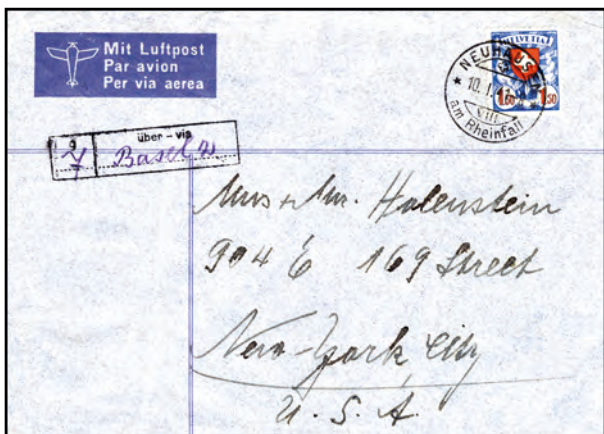 Mit Luftpost
Par avion
Per via aerea
HELVETIA
NEUHAUSEN
10.I.47
VIII
am Rheinfall
1.50 1.50
g
7
über – via
Basel
Mrs + Mr. Halenstein
904 E 169 Street
New-York City
U. S. A.